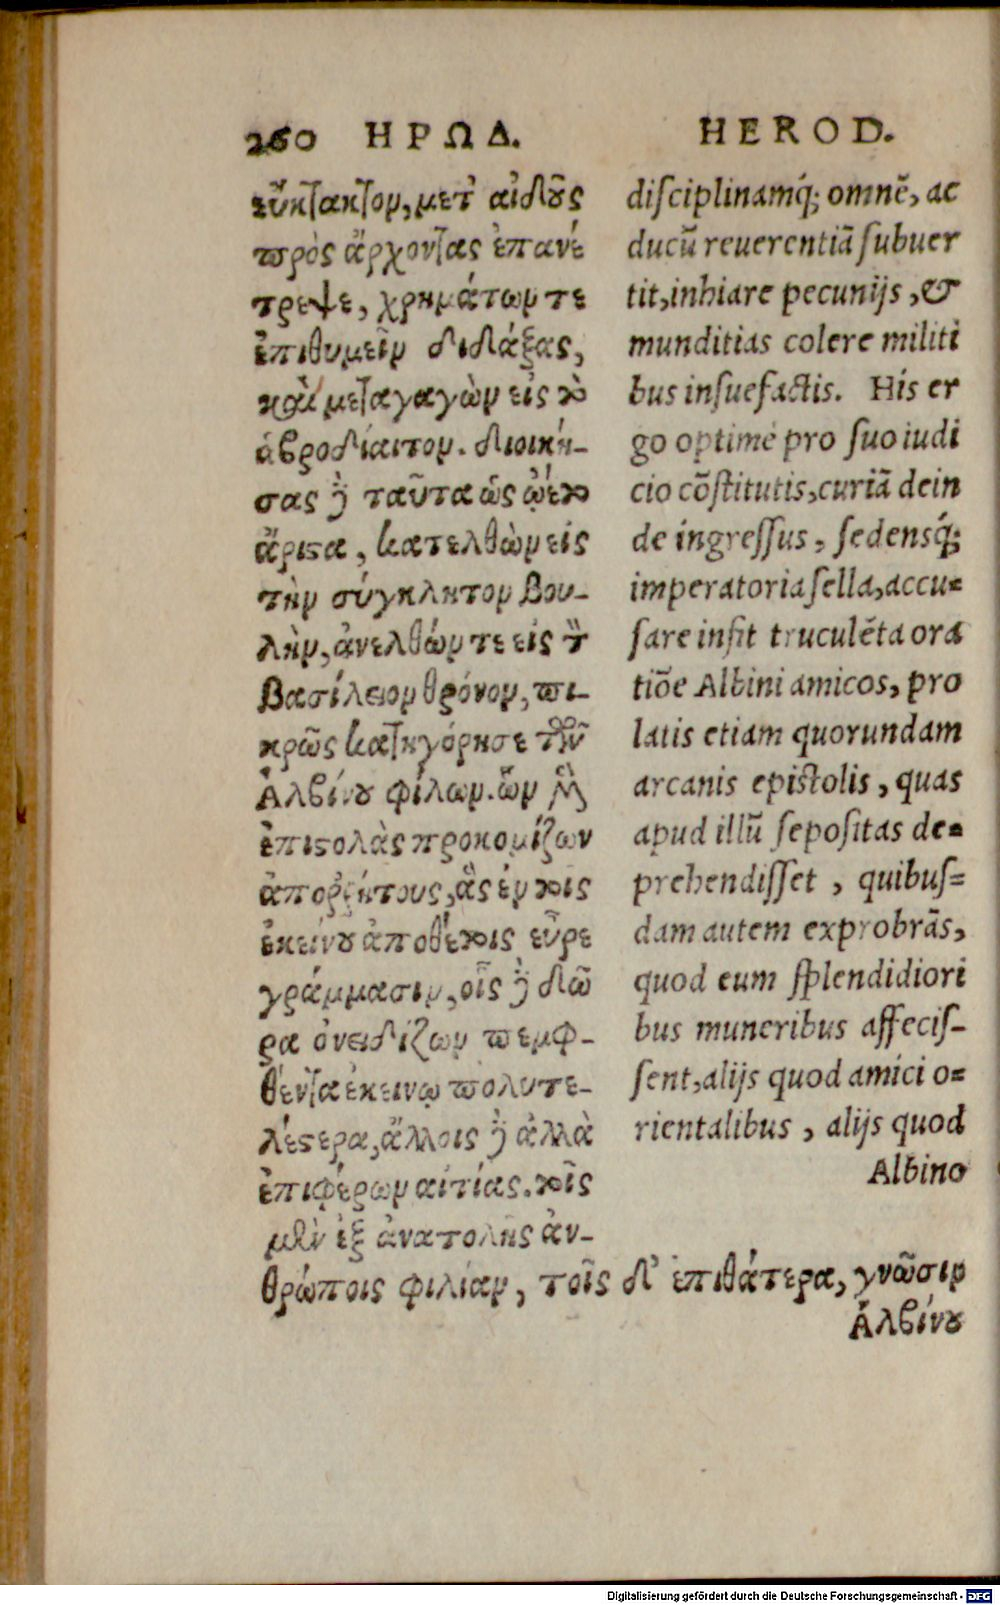 260 ΗΡΩΔ.
εὔκτακτον, μετ' αἰδοῦς
πρὸς ἄρχοντας ἐπανέ
τρεψε, χρημάτων τε
ἐπιθυμεῖν διδάξας,
καὶ μεταγαγὼν εἰς τὸ
ἁβροδίαιτον. διοική-
σας δὲ ταῦτα ὡς ᾤετο
ἄριστα, κατελθὼν εἰς
τὴν σύγκλητον βου-
λὴν, ἀνελθών τε εἰς τὸν
βασίλειον θρόνον, πι-
κρῶς κατηγόρησε τῶν
Ἀλβίνου φίλων. ὧν μὲν
ἐπιστολὰς προκομίζων
ἀποῤῥήτους, ἃς ἐν τοῖς
ἐκείνου ἀποθέτοις εὗρε
γράμμασιν, οἷς δὲ δῶ
ρα ὀνειδίζων πεμφ-
θέντα ἐκεινῳ πολυτε-
λέστερα, ἄλλοις δὲ ἀλλὰ
ἐπιφέρων αἰτίας. τοῖς
μὲν ἐξ ἀνατολῆς ἀν-
θρώποις φιλίαν, τοῖς δ' ἐπιθάτερα, γνῶσιν
Ἀλβίνου
HEROD.
disciplinamq́; omnẽ, ac
ducũ reuerentiã subuer
tit, inhiare pecunijs, &
munditias colere militi
bus insuefactis. His er
go optimè pro suo iudi
cio cõstitutis, curiã dein
de ingressus, sedensq́;
imperatoria sella, accu=
sare infit truculẽta ora
tiõe Albini amicos, pro
latis etiam quorundam
arcanis epistolis, quas
apud illũ sepositas de=
prehendisset, quibus=
dam autem exprobrãs,
quod eum splendidiori
bus muneribus affecis-
sent, alijs quod amici o=
rientalibus, alijs quod
Albino
Digitalisierung gefördert durch die Deutsche Forschungsgemeinschaft - DFG